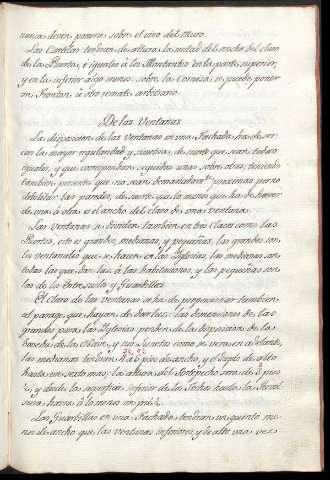 nunca deven ponerse sobre el vivo del Muro.
Las Cartelas tendran de altura la mitad del ancho del claro
de la Puerta, è iguales à los Machiembros en la parte superior,
y en la inferior algo menos: sobre la Cornisa se puede poner
un Frontón ù otro remate arbitrario.
De las Ventanas
La disposicion de las ventanas en una Fachada ha de ser
con la mayor regularidad y simetria, de suerte que sean todas
iguales, y que correspondan seguidas unas sobre otras; teniendo
tambien presente que no sean demasiadam.te proximas para no
debilitar las paredes, de suerte que lo menos que ha de haver
de una à otra es el ancho del claro de una ventana.
Las Ventanas se dividen tambien en tres Clases como las
Puertas, esto es grandes, medianas, y pequeñas, las grandes son
los ventanales que se hacen en las Iglesias, las medianas son
todas las que dan luz à las habitaciones, y las pequeñas son
las de los Entresuelos y Guardillas.
El claro de las ventanas se ha de proporcionar tambien
al parage que hayan de dar luz: las dimensiones de las
grandes para las Iglesias penden de la disposicion de la
Boveda de la Nave, y sus Lunetos como se vera en adelante,
las medianas tendran 4 à 6 pies de ancho, y el duplo de alto
hasta un sexto mas; la altura del Antepecho sera de 3 pies
y desde la superficie inferior de los Techos hasta la
havra à lo menos un pie
Las Guardillas en una Fachada tendran un quinto me-
nos de ancho que las ventanas inferiores, y de alto una vez